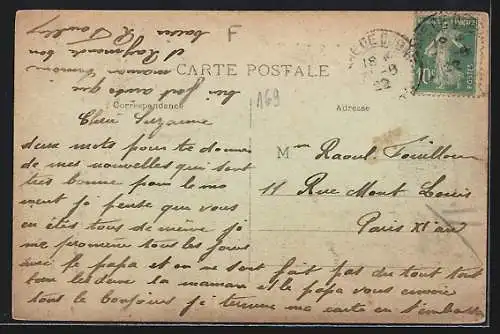 F
CARTE POSTALE
Correspondance
Adresse
169
18
10
POSTES
Cher Suzanne
deux mots pour te donner
de mes nouvelles qui sont
tres bonne pour le mo
ment je pense que vous
en êtes tous de même je
me promene tous les jours
avec le papa et on ne sait pas du tout tout
bou les deux ta maman et le papa vous envoie
tous le bonjours je termine ma carte en t'embrasse
bien fort ainsi que
maman
et Raymonde ton
M Raoul
11 Rue Mont Louis
Paris XI arr